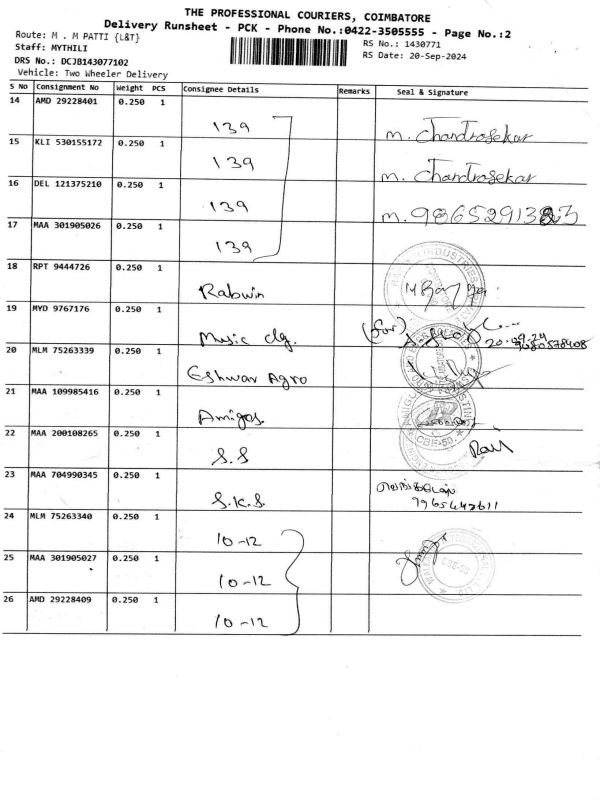 THE PROFESSIONAL COURIERS, COIMBATORE
Delivery Runsheet - PCK - Phone No.:0422-3505555 - Page No.:2
Route: M . M PATTI {L&T}
RS No.: 1430771
Staff: MYTHILI
RS Date: 20-Sep-2024
DRS No.: DCJB143077102
Vehicle: Two Wheeler Delivery
S No Consignment No Weight PCS Consignee Details Remarks Seal & Signature
14 AMD 29228401 0.250 1
139 M. Chandrasekar
15 KLI 530155172 0.250 1
139 M. Chandrasekar
16 DEL 121375210 0.250 1
139
17 MAA 301905026 0.250 1
139
18 RPT 9444726 0.250 1
Rabwin
19 MYD 9767176 0.250 1
Music clg. (for)
20.09.24
20 MLM 75263339 0.250 1
Eshwar Agro
21 MAA 109985416 0.250 1
Amigos.
22 MAA 200108265 0.250 1
S.S
CBE-50.
23 MAA 704990345 0.250 1
S.K.S.
24 MLM 75263340 0.250 1
10-12
25 MAA 301905027 0.250 1
10-12
26 AMD 29228409 0.250 1
10-12